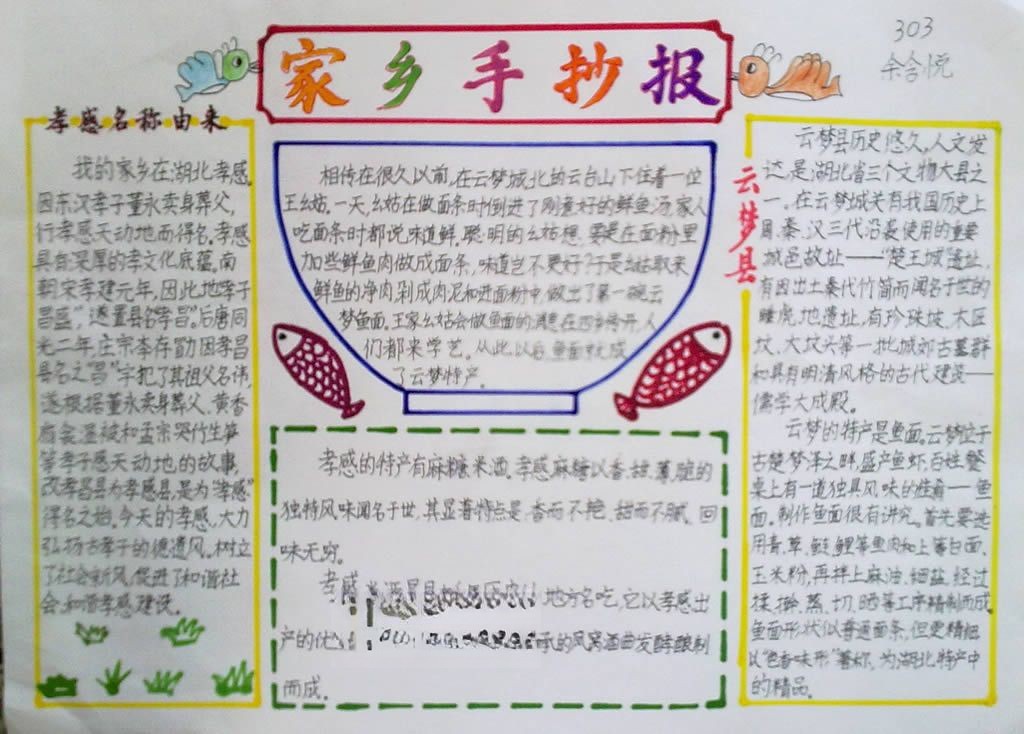 家乡手抄报
303
余含悦
孝感名称由来
我的家乡在湖北孝感,
因东汉孝子董永卖身葬父,
行孝感天动地而得名。孝感
具有深厚的孝文化底蕴。南
朝宋孝建元年,因此地"孝子
昌盛",遂置县名"孝昌"。后唐同
光二年,庄宗李存勖因孝昌
县名之"昌"字犯了其祖父名讳,
遂根据董永卖身葬父、黄香
扇衾温被和孟宗哭竹生笋
等孝子感天动地的故事,
改孝昌县为孝感县,是为"孝感"
得名之始。今天的孝感,大力
弘扬古孝子的德遗风。树立
了社会新风,促进了和谐社
会、和谐孝感建设。
相传在很久以前,在云梦城北的云台山下住着一位
王幺姑。一天,幺姑在做面条时倒进了刚煮好的鲜鱼汤,家人
吃面条时都说味道鲜。聪明的幺姑想,要是在面粉里
加些鲜鱼肉做成面条,味道岂不更好?于是幺姑取来
鲜鱼的净肉,剁成肉泥和进面粉中,做出了第一碗云
梦鱼面。王家幺姑会做鱼面的消息在四乡传开,人
们都来学艺。从此以后,鱼面就成
了云梦特产。
孝感的特产有麻糖米酒。孝感麻糖以香、甜、薄、脆的
独特风味闻名于世,其显著特点是,香而不艳、甜而不腻、回
味无穷。
孝感米酒 地方名吃,它以孝感出
产的优 承的风窝酒曲发酵酿制
而成。
云梦县
云梦县历史悠久,人文发
达,是湖北省三个文物大县之
一。在云梦城关有我国历史上
周、秦、汉三代沿袭使用的重要
城邑故址——"楚王城"遗址,
有因出土秦代竹简而闻名于世的
睡虎地遗址,有珍珠坡、木匠
坟、大坟头第一批城郊古墓群
和具有明清风格的古代建筑——
儒学大成殿。
云梦的特产是鱼面。云梦位于
古楚梦泽之畔,盛产鱼虾,百姓餐
桌上有一道独具风味的佳肴——鱼
面。制作鱼面很有讲究。首先要选
用青、草、鲢、鲤等鱼肉和上等白面、
玉米粉,再拌上麻油、细盐,经过
揉、擀、蒸、切、晒等工序精制而成。
鱼面形状似普通面条,但更精细,
以"色香味形"著称,为湖北特产中
的精品。